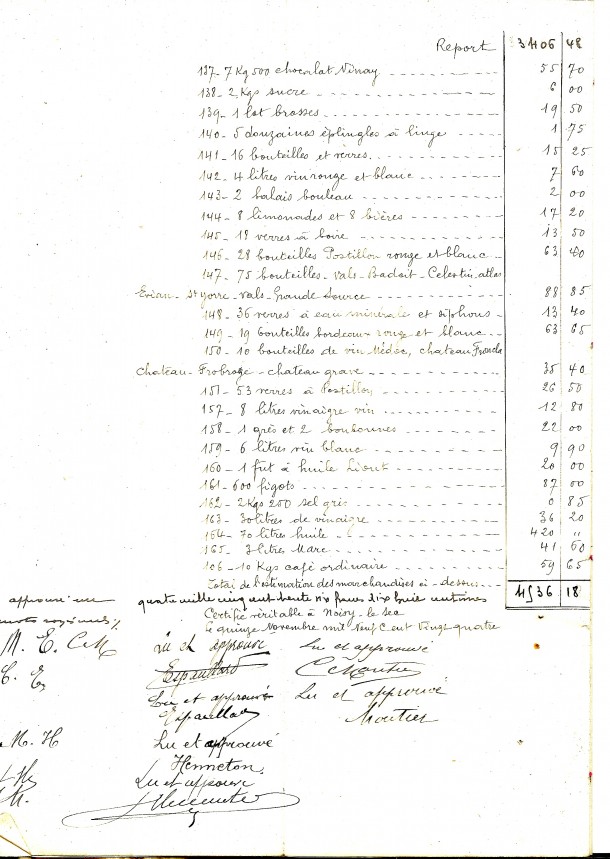 Report 3406 48
137- 7 Kg 500 chocolat Vinay 55 70
138- 2 Kgs sucre 6 00
139- 1 lot brosses 19 50
140- 5 douzaines éplingles à linge 1 75
141- 16 bouteilles et verres 15 25
142- 4 litres vin rouge et blanc 7 60
143- 2 balais bouleau 2 00
144- 8 limonades et 8 bières 17 20
145- 18 verres à boire 13 50
146- 28 bouteilles Postillon rouge et blanc 63 40
147- 75 bouteilles Vals-Badoit-Celestin,
Evian-St yorre-Vals-Grande source 88 85
148- 36 verres à eau minérale et siphons 13 40
149- 19 bouteilles bordeaux rouge et blanc 63 65
150- 10 bouteilles de vin Médoc, chateau
Chateau- -chateau grave 35 40
151- 53 verres à Postillon 26 50
157- 8 litres vinaigre vin 12 80
158- 1 grès et 2 bonbonnes 22 00
159- 6 litres vin blanc 9 90
160- 1 fut à huile 20 00
161- 600 fagots 87 00
162- 2 Kgs 250 sel gris 0 85
163- 30 litres de vinaigre 36 20
164- 70 litres huile 420 "
165- litres Marc 41 60
166- 10 Kgs café ordinaire 59 65
Total de l'estimation des marchandises ci-dessus 4536 18
approuvé quatre mille cinq cent trente six francs dix huit centimes
mots rayés nuls
Certifié véritable à Noisy-le sec
Le quinze Novembre mil Neuf Cent Vingt quatre
M. E. C M Lu et approuvé Lu et approuvé
C. E
Lu et approuvé Lu et approuvé
Moutier
M. H Lu et approuvé
Henneton
Lu et approuvé